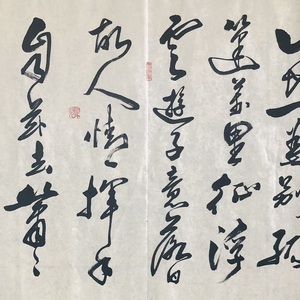 此地一為別孤
蓬萬里征浮
雲遊子意落日
故人情揮手
自茲去蕭〻